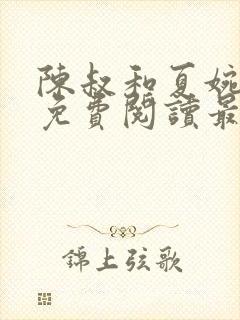 陳叔和夏婉
免費閱讀最
錦上弦歌